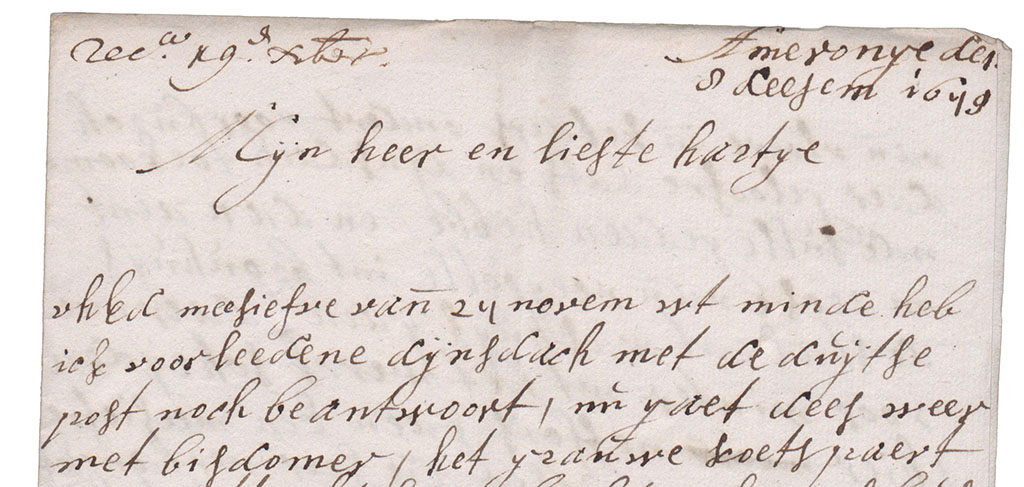 rec.a 19.d xber.
Ameronge den
8 deesem 1679
Mijn heer en liefste hartge
uhEd meesiefve van 24 novem wt minde heb
ick voorleedene dijnsdach met de duijtse
post noch beantwoort, nu gaet dees weer
met bisdomer, het grauwe koetspaert